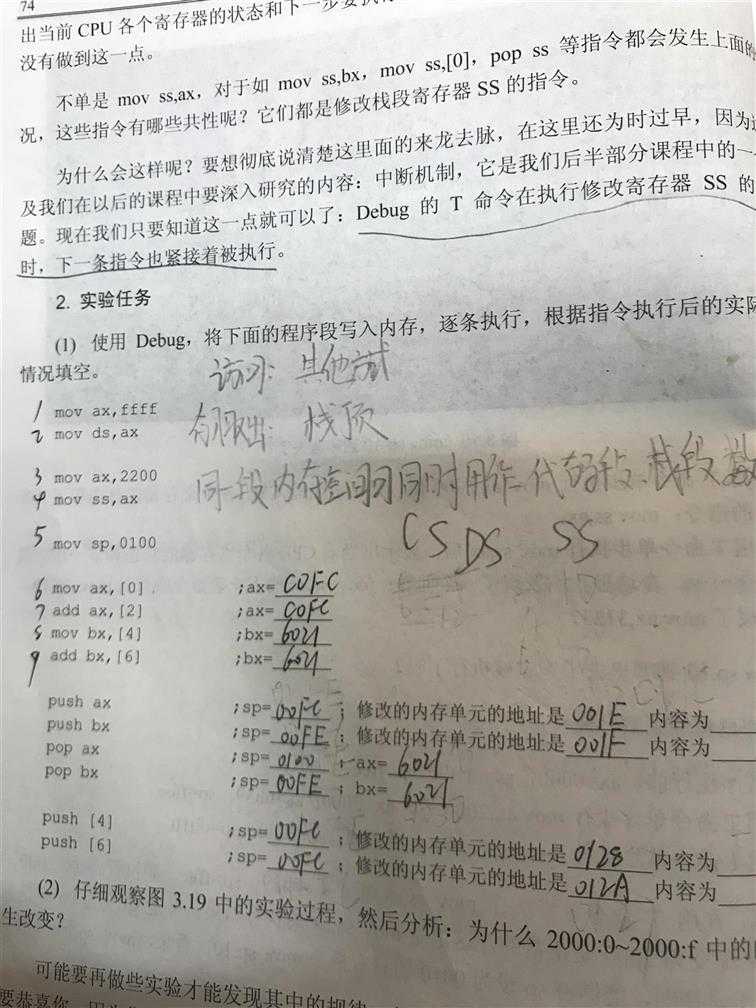 74
出当前 CPU 各个寄存器的状态和下一步要执行
没有做到这一点。
不单是 mov ss,ax，对于如 mov ss,bx，mov ss,[0]，pop ss 等指令都会发生上面的
况，这些指令有哪些共性呢？它们都是修改栈段寄存器 SS 的指令。
为什么会这样呢？要想彻底说清楚这里面的来龙去脉，在这里还为时过早，因为
及我们在以后的课程中要深入研究的内容：中断机制，它是我们后半部分课程中的一
题。现在我们只要知道这一点就可以了：Debug 的 T 命令在执行修改寄存器 SS 的
时，下一条指令也紧接着被执行。
2. 实验任务
(1) 使用 Debug，将下面的程序段写入内存，逐条执行，根据指令执行后的实际
情况填空。
访问: 其他
1 mov ax,ffff
2 mov ds,ax
栈顶
3 mov ax,2200
4 mov ss,ax
同一段内存空间可同时用作代码段、栈段、数
5 mov sp,0100
CS DS SS
6 mov ax,[0] ;ax=C0FC
7 add ax,[2] ;ax=C0FC
8 mov bx,[4] ;bx=6021
9 add bx,[6] ;bx=6021
push ax ;sp=00FC ；修改的内存单元的地址是 001E 内容为
push bx ;sp=00FE ；修改的内存单元的地址是 001F 内容为
pop ax ;sp=0100 ；ax=6021
pop bx ;sp=00FE ；bx=6021
push [4] ;sp=00FC ；修改的内存单元的地址是 0128 内容为
push [6] ;sp=00FC ；修改的内存单元的地址是 012A 内容为
(2) 仔细观察图 3.19 中的实验过程，然后分析：为什么 2000:0~2000:f 中的
生改变？
可能要再做些实验才能发现其中的规律
要恭喜你，因为